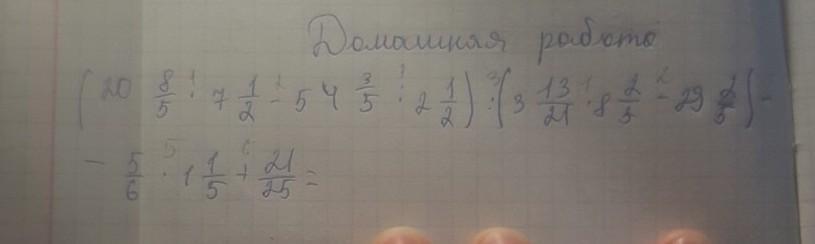 Домашняя работа
(20 8/5 : 7 1/2 - 54 3/5 : 2 1/2) : (3 13/21 · 8 2/5 - 29 2/5) -
- 5/6 · 1 1/5 + 21/25 =